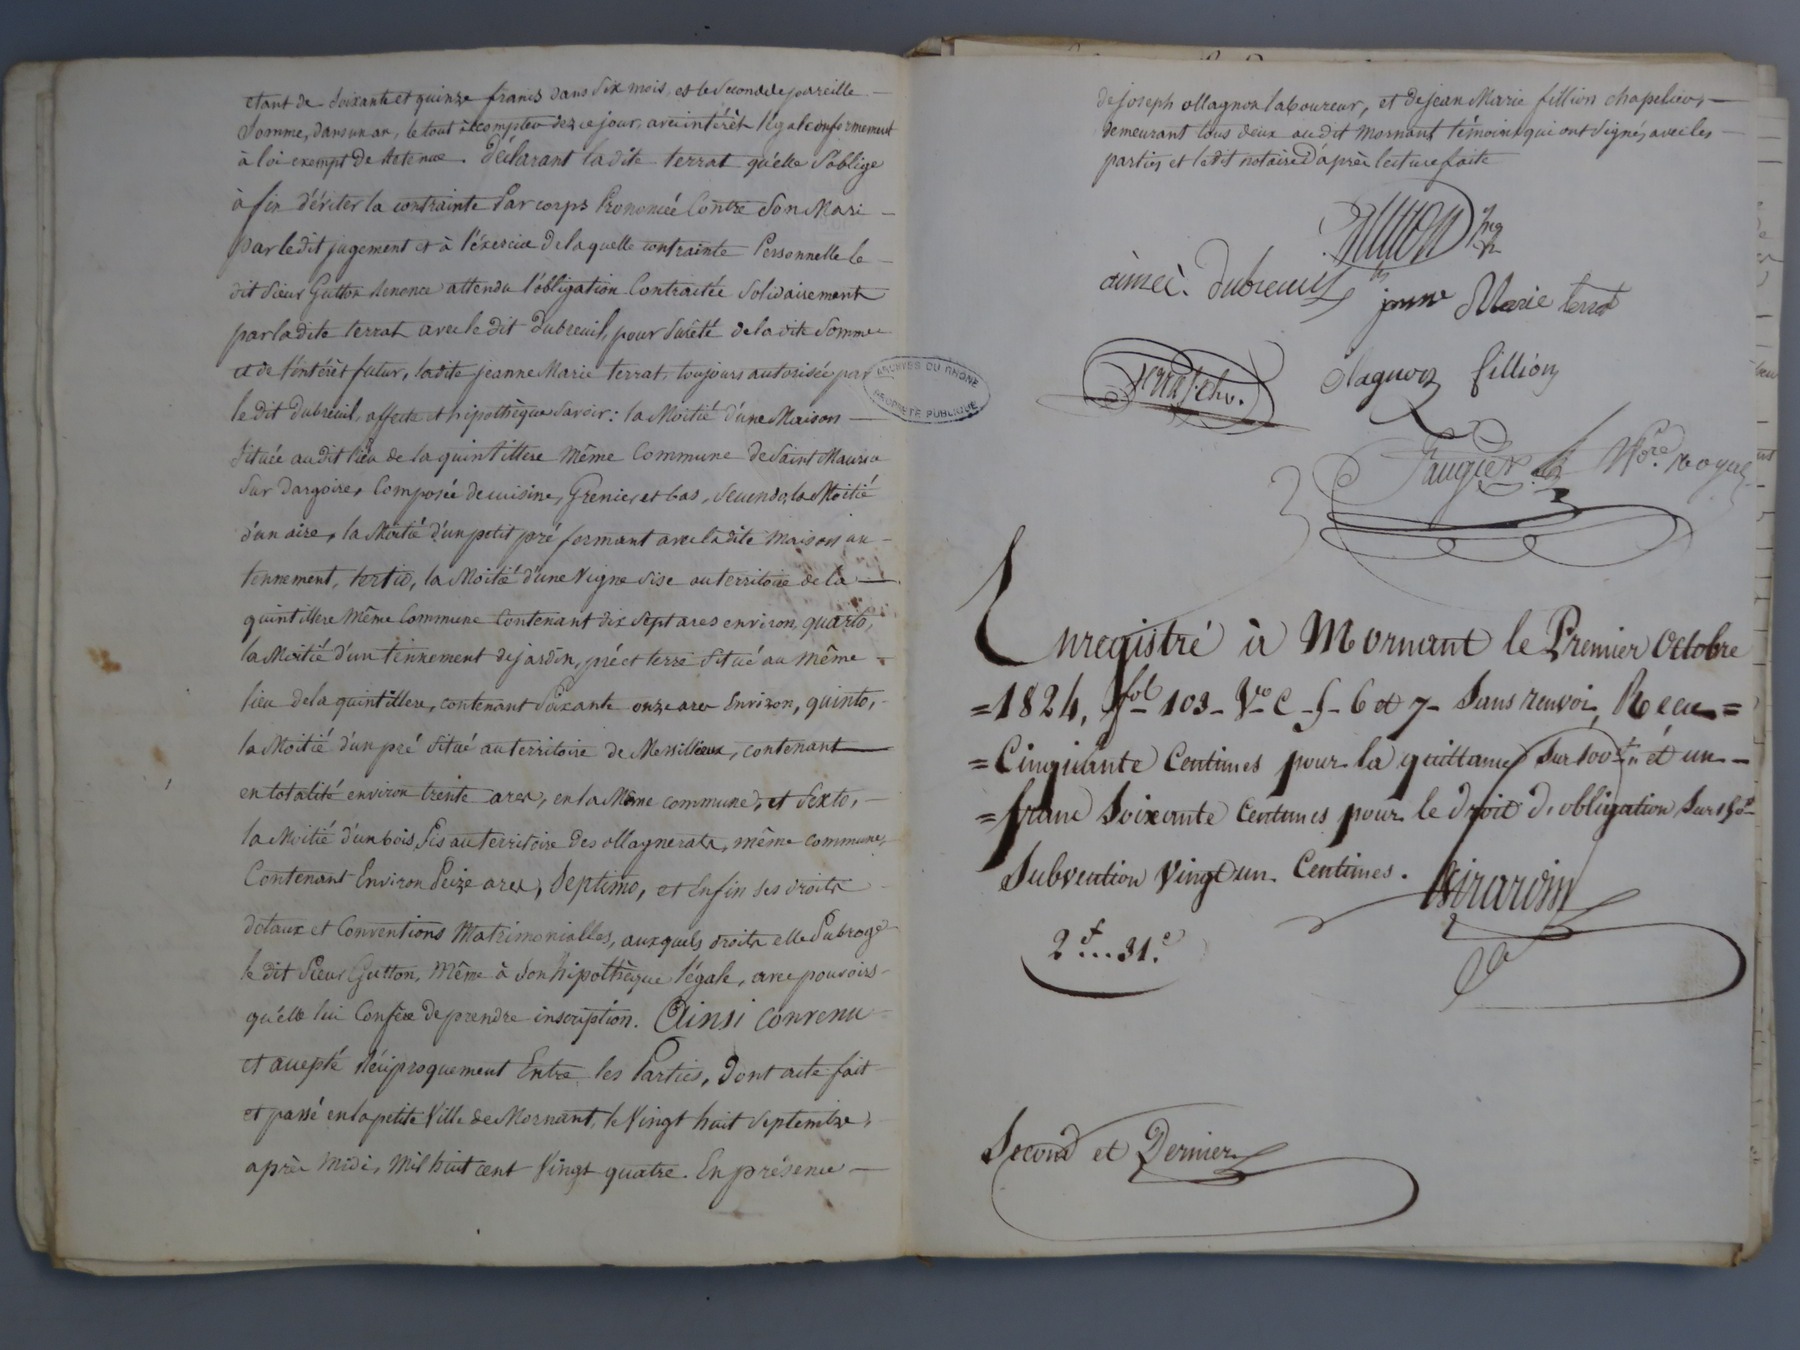 etant de Soixante et quinze francs dans Six mois, et le Second de pareille
Somme, dans un an, le tout à compter de ce jour, avec intérêt légal conformement
à loi exempt de Retenue. Déclarant la dite terrat qu'elle S'oblige
à fin d'éviter la contrainte Par corps Prononcée Contre Son Mari
par le dit jugement et à l'éxercice de laquelle contrainte Personnelle le
dit Sieur Gutton Renonce attendu l'obligation Contractée Solidairement
par la dite terrat avec le dit Dubreuil, pour Sureté de la dite Somme
et de l'intérèt futur, la dite jeanne Marie terrat, toujours autorisée par
le dit dubreuil, affecte et hipothèque Savoir: la Moitié d'une Maison
Située au dit lieu de la quintillere Même Commune de Saint Maurice
Sur dargoire, Composée de cuisine, Grenier, et bas, Secundo, la Moitié
d'un aire, la Moitié d'un petit pré formant avec la dite maison un
tennement, tertio, la Moitié d'une Vigne Sise au territoire de la
quintillere Même Commune Contenant dix Sept ares environ, quarto,
la Moitié d'un tennement de jardin, pré et terre Situé au même
lieu de la quintillere, contenant Soixante onze ares Environ, quinto,
la Moitié d'un pré Situé au territoire de Messillieux, contenant
en totalité environ trente ares, en la Même commune, et Sexto,
la Moitié d'un bois Sis au territoire des ollagnerats, même commune,
Contenant Environ Seize ares, Septimo, et Enfin ses droits
dotaux et Conventions Matrimonialles, auxquels droits elle Subroge
le dit Sieur Gutton, Même à Son hipothèque légale, avec pouvoirs
qu'elle lui Confère de prendre inscription. Ainsi convenu
et accepté Réciproquement Entre les Parties, Dont acte fait
et passé en la petite Ville de Mornant, le Vingt huit Septembre,
après Midi, Mil huit cent Vingt quatre. En présence
ARCHIVES DU RHONE
PROPRIETE PUBLIQUE
de joseph ollagnon laboureur, et de jean Marie fillion chapelier,
demeurant tous deux au dit Mornant témoins qui ont Signé, avec les
parties et le dit notaire D'après lecture faite
aimée. Dubreuil jeanne Marie terrat
olagnon fillion
Faugier Nore. royal
Enregistré à Mornant le Premier Octobre
=1824, fol 103 Vo C. f 6 et 7 Sans renvoi, Recu=
=Cinquante Centimes pour la quittance Sur 100f et un
=franc Soixante Centimes pour le droit d'obligation Sur 150f
Subvention Vingt un Centimes. Girardin
2f...31.c
Second et Dernier